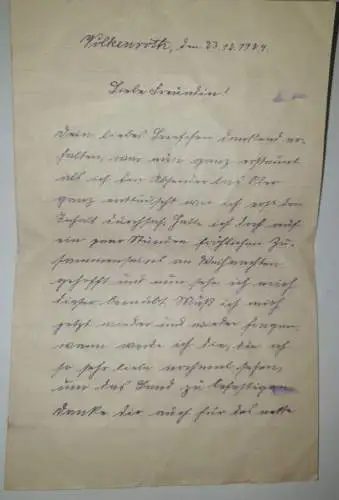 Volkenroth, den 23.12.1929.
Liebe Freundin!
Dein liebes Briefchen dankend er-
halten, war nun ganz erstaunt
als ich den Absender las. Aber
ganz enttäuscht wie ich erst den
Inhalt durchsah. Hatte ich doch auf
ein paar Stunden fröhlichen Zu-
sammenseins an Weihnachten
gehofft und nun sehe ich mich
dieser beraubt. Muß ich mich
jetzt wieder und wieder fragen
wann werde ich die, die ich
so sehr liebe nochmal sehen,
um das Band zu befestigen.
Danke dir auch für das nette